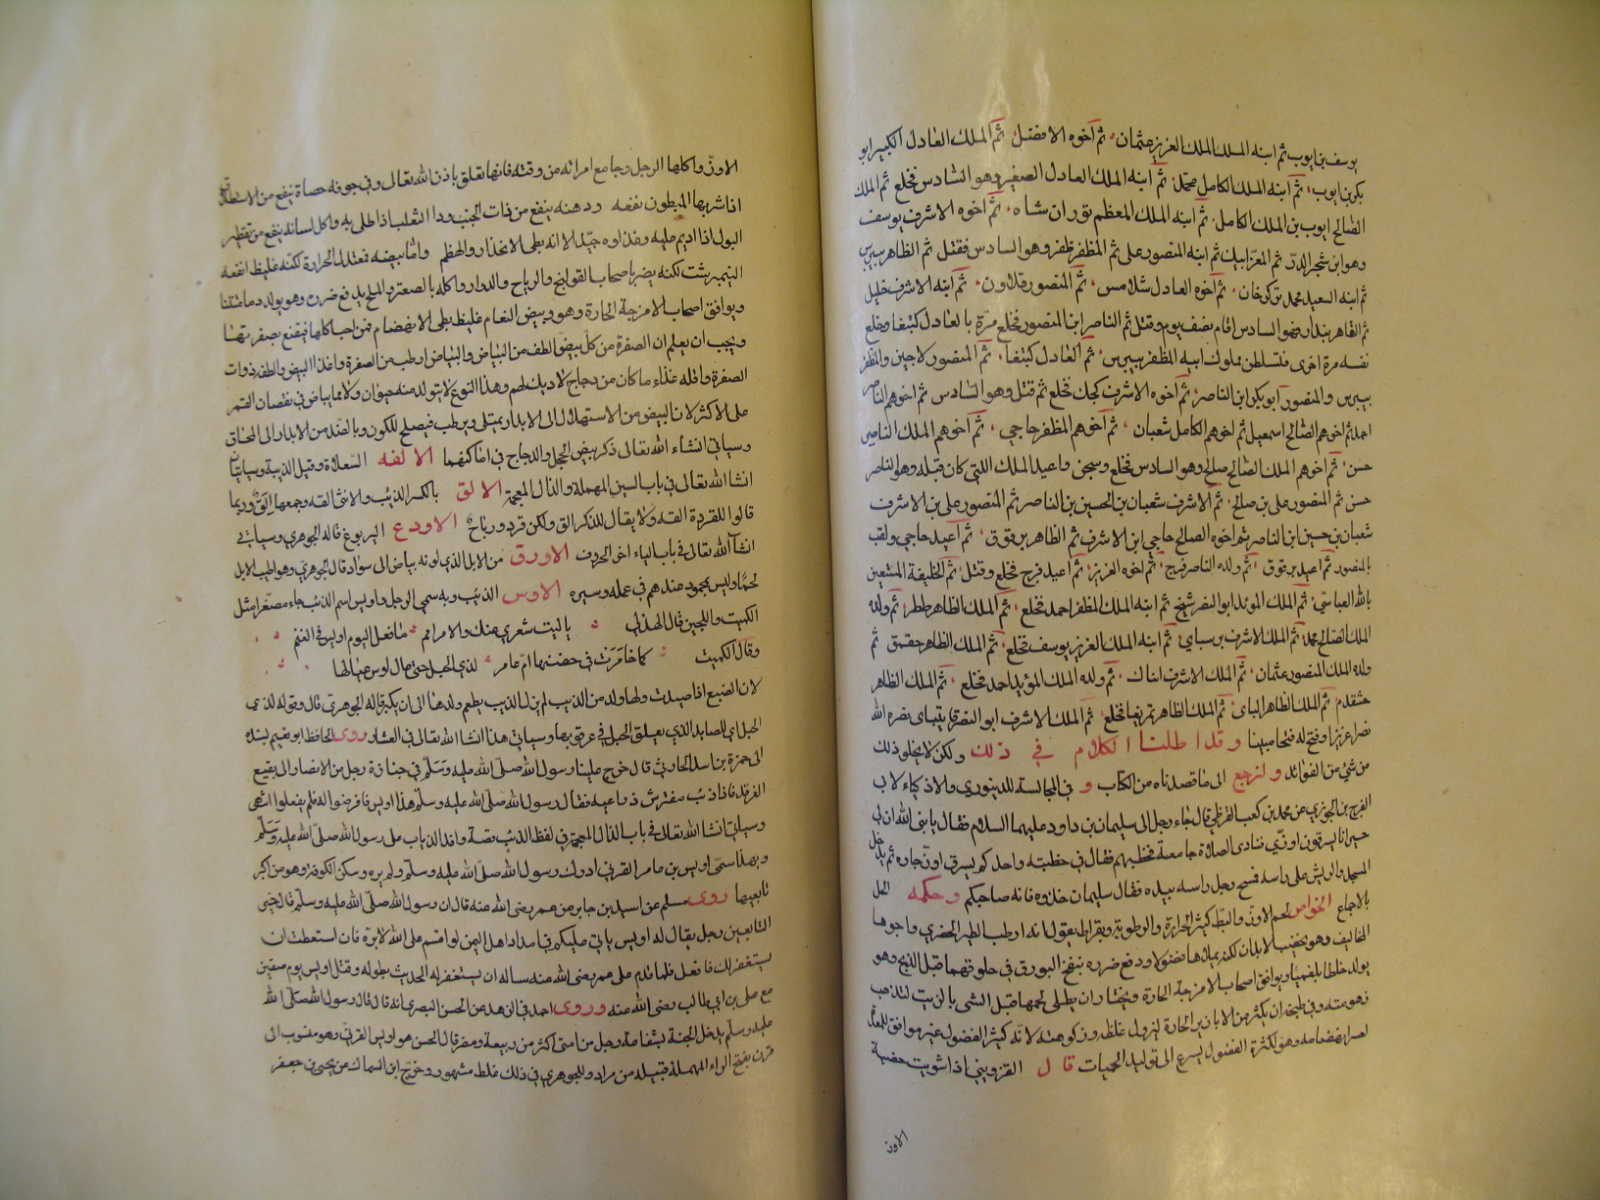 يوسف بن ايوب ثم ابنه الملك الملك العزيز عثمان ثم اخوه الافضل ثم الملك العادل الكبير ابو
بكر بن ايوب ثم ابنه الملك الكامل محمد ثم ابنه الملك العادل الصغير وهو السادس فخلع ثم الملك
الصالح ايوب بن الملك الكامل ثم ابنه الملك المعظم توران شاه ثم اخوه الاشرف يوسف
وهو ابن شجر الدر ثم المعز ايبك ثم ابنه المنصور على ثم المظفر قطز وهو السادس فقتل ثم الظاهر بيبرس
ثم ابنه السعيد محمد بركة خان ثم اخوه العادل سلامس ثم المنصور قلاون ثم ابنه الاشرف خليل
ثم القاهر بيدار وهو السادس اقام نصف يوم وقتل ثم الناصر ابن المنصور فخلع مرة بالعادل كتبغا وخلع
نفسه مرة اخرى فتسلطن مملوك ابيه المظفر بيبرس ثم العادل كتبغا ثم المنصور لاجين والمظفر
بيبرس والمنصور ابو بكر ابن الناصر ثم اخوه الاشرف كجك فخلع ثم قتل وهو السادس ثم اخوهم الناصر
احمد ثم اخوهم الصالح اسمعيل ثم اخوهم الكامل شعبان ثم اخوهم المظفر حاجي ثم اخوهم الملك الناصر
حسن ثم اخوهم الملك الصالح صالح وهو السادس فخلع وسجن واعيد الملك اللتى كان قبله وهو الناصر
حسن ثم المنصور على بن صالح ثم الاشرف شعبان بن الحسين بن الناصر ثم المنصور على بن الاشرف
شعبان بن حسين ابن الناصر ثم اخوه الصالح حاجي ابن الاشرف ثم الظاهر برقوق ثم اعيد حاجي ولقب
بالمنصور ثم اعيد برقوق ثم ولده الناصر فرج ثم اخوه العزيز ثم اعيد فرج فخلع وقتل ثم الخليفة المستعين
بالله العباسي ثم الملك المويد ابو النصر شيخ ثم ابنه الملك المظفر احمد فخلع ثم الملك الظاهر ططر ثم ولده
الملك الصالح محمد ثم الملك الاشرف برسباي ثم ابنه الملك العزيز يوسف فخلع ثم الملك الظاهر جقمق ثم
ولده الملك المنصور عثمان ثم الملك الاشرف اينال ثم ولده الملك المؤيد احمد فخلع ثم الملك الظاهر
خشقدم ثم الملك الظاهر بلباى ثم الملك الظاهر تمربغا فخلع ثم الملك الاشرف ابو النصر قايتباى نصره الله
نصرا عزيزا وفتح له فتحا مبينا وقد اطلنا الكلام في ذلك ولكن لا يخلو ذلك
من شئ من الفوائد ولنرجع الى ما قصدناه من الكتاب و في المجالسة للدينوري والاذكياء لاب
الفرج بن الجوزي عن محمد بن كعب القرظي قال جاء رجل الى سليمان بن داود عليهما السلام فقال يا نبى الله ان لى
جيرانا يسرقون اوزي فنادى الصلاة جامعة فخطبهم فقال في خطبته واحدكم يسرق اوز جاره ثم يدخل
المسجد والريش على راسه فمسح رجل راسه بيده فقال سليمان خذوه فانه صاحبكم وحكمه الحل
بالاجماع الخواص لحم الاوز والبط كثير الحرارة والرطوبة وبقراط يقول انه ارطب الطير الحضري واجودها
المخاليف وهو يخصب الابدان لكنه يملاها فضولا ودفع ضرره بنفخ البورق في حلوقهما قبل الذبح وهو
يولد خلطا بلغميا ويوافق اصحاب الامزجة الحارة ويختار ان يطلى لحمها قبل الشى بالزيت لتذهب
زهومته وفي طبخه ان يكثر من الابازير الحارة ليزول غلظه وزهومته لانه كثير الفضول غير موافق للمعدة
لعسر انهضامه وهو لكثرة الفضول يسرع الى توليد الحميات قال القزويني اذا شويت خصية
الاوز
الاوز واكلها الرجل وجامع امراته من وقته فانها تعلق باذن الله تعالى وفي جوفه حصاة ينفع من الاستطلاق
اذا شربها المبطون نفعه ودهنه ينفع من ذات الجنب وداء الثعلب اذا طلى به واكل لسانه ينفع من تقطير
البول اذا اديم عليه وغذاوه جيد الا انه بطى الانحذار والهظم واما بيضه فمعتدل الحرارة لكنه غليظ انفعه
النيمبرشت لكنه يضر باصحاب القولنج والرياح والدوار واكله بالصعتر والملح يدفع ضرره وهو يولد دما منتنا
ويوافق اصحاب الامزجة الحارة وهو وبيض النعام غليظ بطى الانهضام فمن احب اكلها فيقنع بصفرتهما
ويجب ان يعلم ان الصفرة من كل بيض الطف من البياض والبياض ارطب من الصفرة واغذا البيض والطفه ذوات
الصفرة واقله غذاء ما كان من دجاج لا ديك لهم وهذا النوع لا يتولد منه حيوان ولا مما يباض في نقصان القمر
على الاكثر لان البيض من الاستهلال الى الابدار يمتلى ويرطب فيصلح للكون وبالضد من الابدار الى المحاق
وسياتي انشاء الله تعالى ذكر بيض الحجل والدجاج في اماكنهما الالفه السعلاة وقيل الذيبة وسياتيان
انشا الله تعالى في باب السين المهملة والذال المعجمة الالق بالكسر الذيب والانثى القه وجمعها الق وربما
قالوا للقردة القه ولا يقال للذكر الق ولكن قرد ورباح الاودع اليربوع قاله الجوهري وسياتي
انشا الله تعالى في باب الياء اخر الحروف الاورق من الابل الذي لونه بياض الى سواد قال الجوهري وهو اطيب الابل
لحما وليس بمحمود عندهم في عمله وسيره الاوس الذيب وبه سمي الرجل واويس اسم الذيب جاء مصغرا مثل
الكميت واللجين قال الهذلي ياليت شعري عنك والامر امم ما فعل اليوم اويس في الغنم
وقال الكميت كما خامرت في حضنها ام عامر لذي الحبل حتى عال اوس عيالها
لان الضبع اذا صيدت ولها ولد من الذيب لم يزل الذيب يطعم ولدها الى ان يكبر قاله الجوهري قال وقوله لذي
الحبل اي للصايد الذي يعلق الحبل في عرقوبها وسياتي هذا انشا الله تعالى في العشار روى الحافظ ابو نعيم بسنده
الى حمزة بن اسد الحارثي قال خرج علينا رسول الله صلى الله عليه وسلم في جنازة رجل من الانصار الى بقيع
الغرقد فاذا ذيب مفترش ذراعيه فقال رسول الله صلى الله عليه وسلم هذا اويس فافرضوا له فلم يفعلوا انتهى
وسياتي انشا الله تعالى في باب الذال المعجمة في لفظ الذيب قصة وافد الذياب على رسول الله صلى الله عليه وسلم
وبهذا سمى اويس بن عامر القرني ادرك رسول الله صلى الله عليه وسلم ولم يره وسكن الكوفة وهو من اكبر
تابعيها روى مسلم عن اسيد بن جابر عن عمر رضى الله عنه قال ان رسول الله صلى الله عليه وسلم قال خير
التابعين رجل يقال له اويس ياتي عليكم في امداد اهل اليمن لو اقسم على الله لابره فان استطعت ان
يستغفر لك فافعل فلما قدم على عمر رضى الله عنه ساله ان يستغفر له الحديث بطوله وقتل اويس يوم صفين
مع على بن ابى طالب رضى الله عنه وروى احمد في الزهد عن الحسن البصري انه قال قال رسول الله صلى الله
عليه وسلم يدخل الجنة بشفاعة رجل من امتى اكثر من ربيعة ومضر قال الحسن هو اويس القرني وهو منسوب الى
قرن بفتح الراء المهملة قبيلة من مراد وللجوهري في ذلك غلط مشهور وخرج ابن السماك عن يحيى بن جعفر